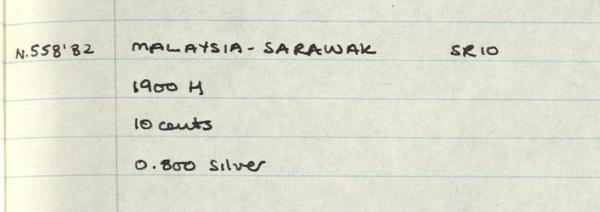 N.558'82 MALAYSIA - SARAWAK SR10
1900 H
10 cents
0.800 Silver